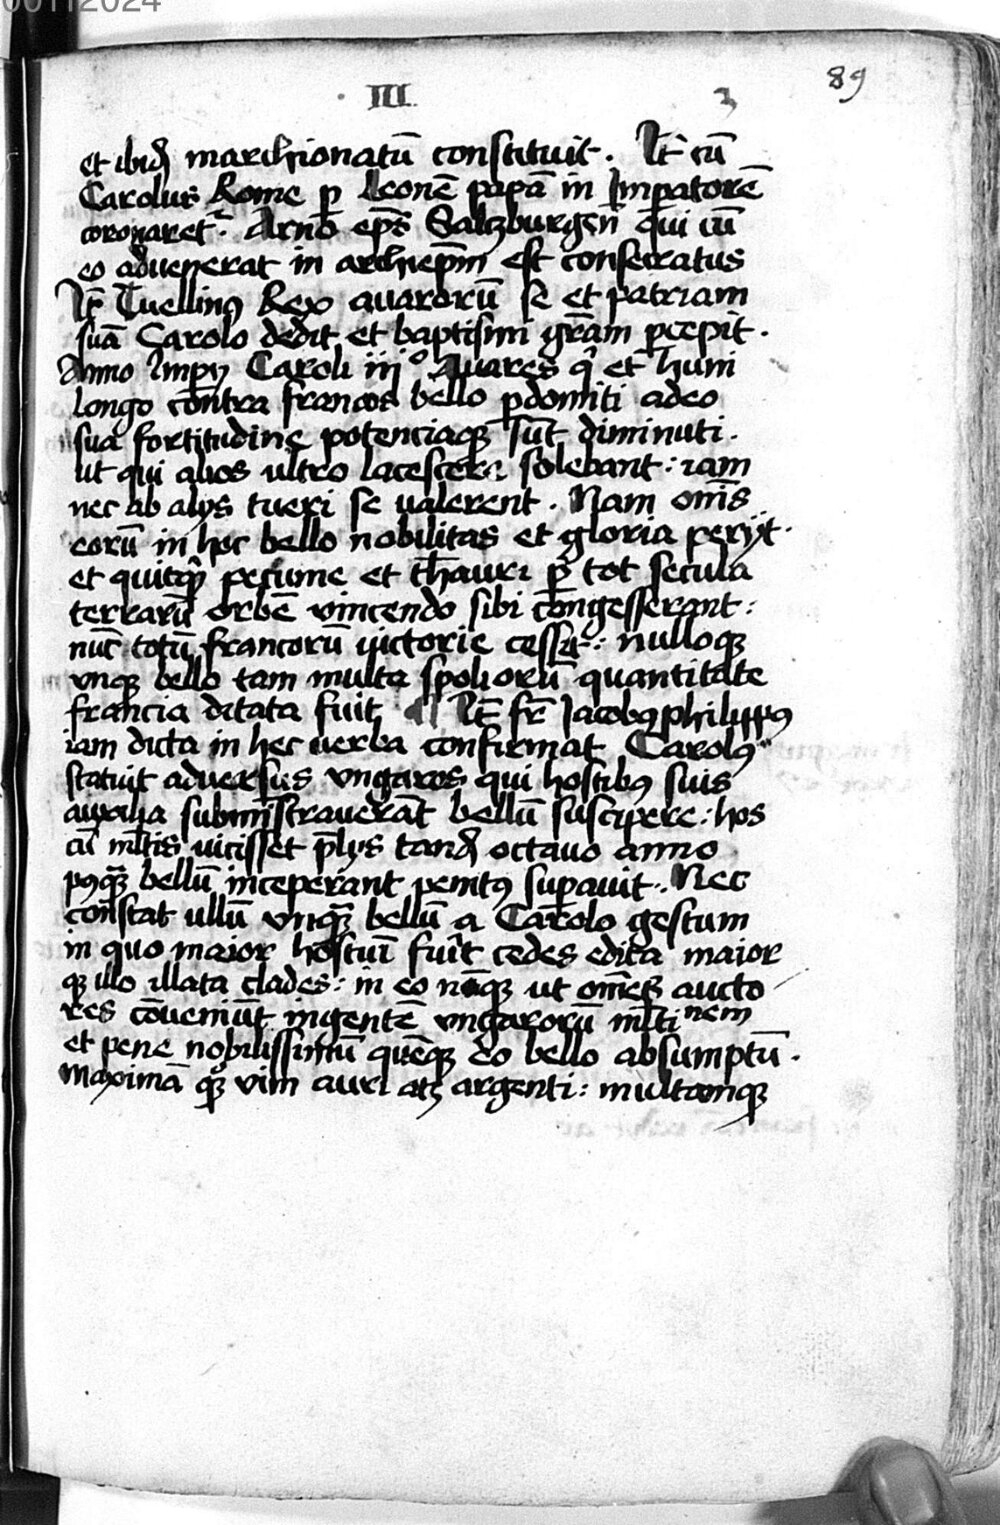 00112024
89
· III · 3
et ibid̄ marchionatū constituit . It̄ cū
Carolus Rome p̱ Leonē papā in Impatorē
coronaret᷑ . Arno ep̄s Saltzburgen̄ qui cū
eo advenerat in archiep̄m est consecratus
It̄ Tuellinꝰ Rex avarorū se et patriam
suā Carolo dedit et baptismi gr̄am p̱cepit .
Anno Impij Caroli iijͦ Avares qͥ et huni
longo contra francos bello p̱domiti adeo
sua fortitudine potenciaqꝫ sūt diminuti .
ut qui alios ultro lacescere solebant : iam
nec ab alijs tueri se valerent . Nam om̄is
eorū in hoc bello nobilitas et gloria perijt .
et quitqͥd pecunie et thauri p̱ tot secula
terrarū orbē vincendo sibi congesserant :
nūc totū francorū victorie cessit : nulloqꝫ
vnqꝫ bello tam multa spoliorū quantitate
francia ditata fuit ¶ It̄ fr̄ Jacobꝰ philippꝰ
iam dicta in hec verba confirmat Carolꝰ
statuit adversus vngaros qui hostibꝰ suis
auxilia subministraverāt bellū suscipere : hos
cū ml̄tis vicisset p̄lijs tand̄ octavo anno
pꝰqꝫ bellū inceperant penitꝰ supavit . Nec
constat ullū vnqꝫ bellū a Carolo gestum
in quo maior hostiū fuit cedes edita maior
qꝫ illo illata clades : in eo nāqꝫ ut om̄es aucto
res cōveniūt ingentē vngarorū ml̄tinem
et pene nobilissimū quēqꝫ eo bello absumptū .
maximā qꝫ vim auri atqꝫ argenti : multamqꝫ